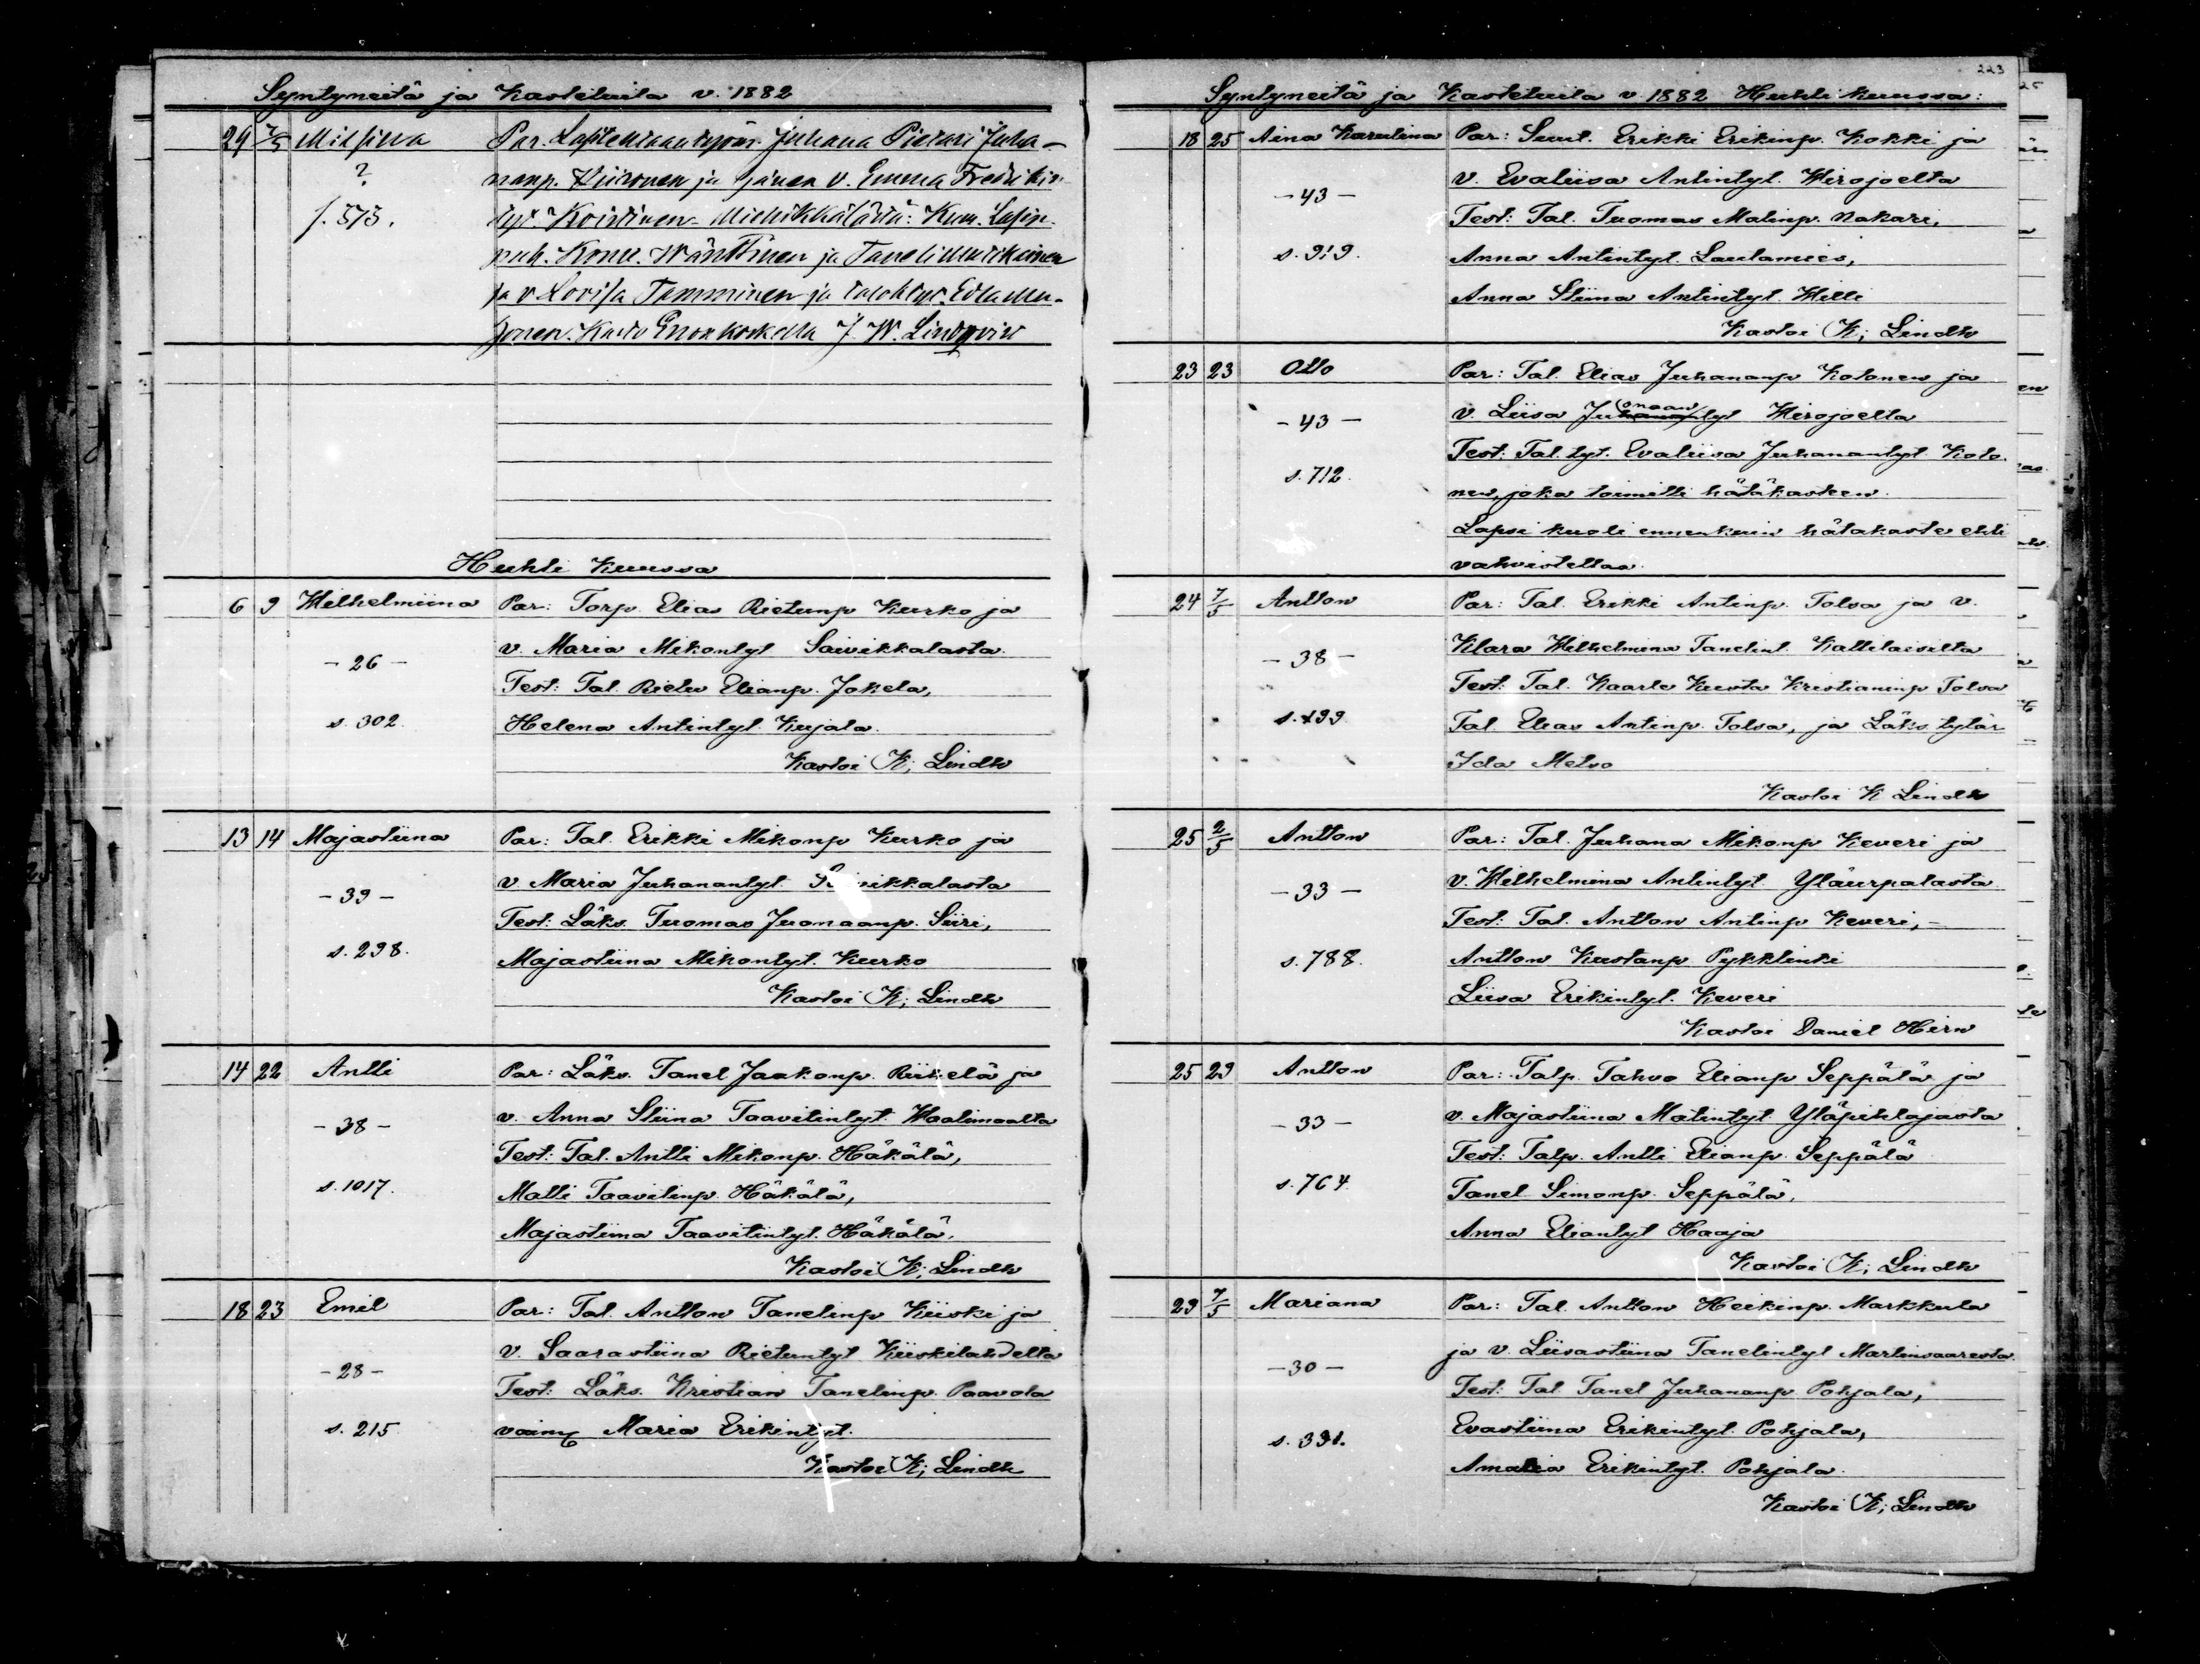 Syntyneitä ja Kastetuita v. 1882
29 7/5 Milsina Par. Juhana Pietari Juha-
? nanp. Kiironen ja hänen v. Emma Fredriki
s. 573. tyt. Koistinen Miehikkälästä: Kum. Lapin
puh. Konr. Wänttinen ja Taneli
ja v. Lovisa Tamminen ja Edla Mu-
jonen. J. W. Lindqvist
Huhti Kuussa
6 9 Wilhelmiina Par: Torp. Elias Pietunp Kurko ja
- 26 - v. Maria Mikontyt Saivikkalasta.
Test: Tal. Pietu Elianp. Jokela,
s. 302. Helena Antintyt. Kujala.
Kastoi K; Lindh
13 14 Majastiina Par: Tal. Erikki Mikonp Kurko ja
- 39 - v. Maria Juhanantyt Saivikkalasta
Test: Läks. Tuomas Juonaanp. Siiri,
s. 298. Majastiina Mikontyt. Kurko
Kastoi K; Lindh
14 22 Antti Par: Läks. Tanel Jaakonp. Riikelä ja
- 38 - v. Anna Stiina Taavitintyt. Waalimaalta
Test: Tal. Antti Mikonp. Häkälä,
s. 1017. Matti Taavitinp. Häkälä,
Majastiina Taavitintyt. Häkälä.
Kastoi K; Lindh
18 23 Emil Par: Tal. Antton Tanelinp Kiiski ja
v. Saarastiina Pietuntyt Kiiskilahdelta
- 28 -
Test: Läks. Kristian Tanelinp. Paavola
s. 215 vaimo Maria Erikintyt.
Kastoi K; Lindh
223
Syntyneitä ja Kastetuita v 1882 Huhti kuussa:
18 25 Aina Karulina Par: Suut. Erikki Erikinp. Kokki ja
- 43 - v. Evaliisa Antintyt. Wirojoelta
Test: Tal. Tuomas Matinp. Nakari,
s. 919. Anna Antintyt. Lautamies,
Anna Stiina Antintyt. Willi
Kastoi K; Lindh
23 23 Otto Par: Tal. Elias Juhananp Kotonen ja
- 43 - v. Liisa Juonaantyt Wirojoelta
Test: Tal. tyt. Evaliisa Juhanantyt. Koto-
s. 712. nen, joka toimitti hätäkasteen.
Lapsi kuoli ennenkuin hätäkaste ehti
vahvistettaa.
24 7/5 Antton Par: Tal. Erikki Antinp. Tolsa ja v.
- 38 - Klara Wilhelmina Tanelint. Kattilaisilta
Test: Tal. Kaarle Kusta Kristianinp Tolsa
s. 499. Tal. Elias Antinp. Tolsa, ja Läks. tytär
Ida Metso
Kastoi K Lindh
25 2/5 Antton Par: Tal. Juhana Mikonp Keveri ja
- 33 - v. Wilhelmina Antintyt Yläurpalasta.
Test: Tal. Antton Antinp Keveri, -
s. 788. Antton Kustanp Pykklinki
Liisa Erikintyt. Keveri
Kastoi Daniel Hirn
25 29 Antton Par: Talp. Tahvo Elianp Seppälä ja
- 33 - v. Majastiina Matintyt Yläpihlajasta
Test: Talp. Antti Elianp. Seppälä
s. 764. Tanel Simonp. Seppälä,
Anna Eliantyt Haaja
Kastoi K; Lindh
29 7/5 Mariana Par: Tal. Antton Heikinp. Markkula
- 30 - ja v. Liisastiina Tanelintyt Martinsaaresta.
Test: Tal Tanel Juhananp Pohjala,
s. 391. Evastiina Erikintyt. Pohjala,
Amalia Erikintyt. Pohjala.
Kastoi K; Lindh